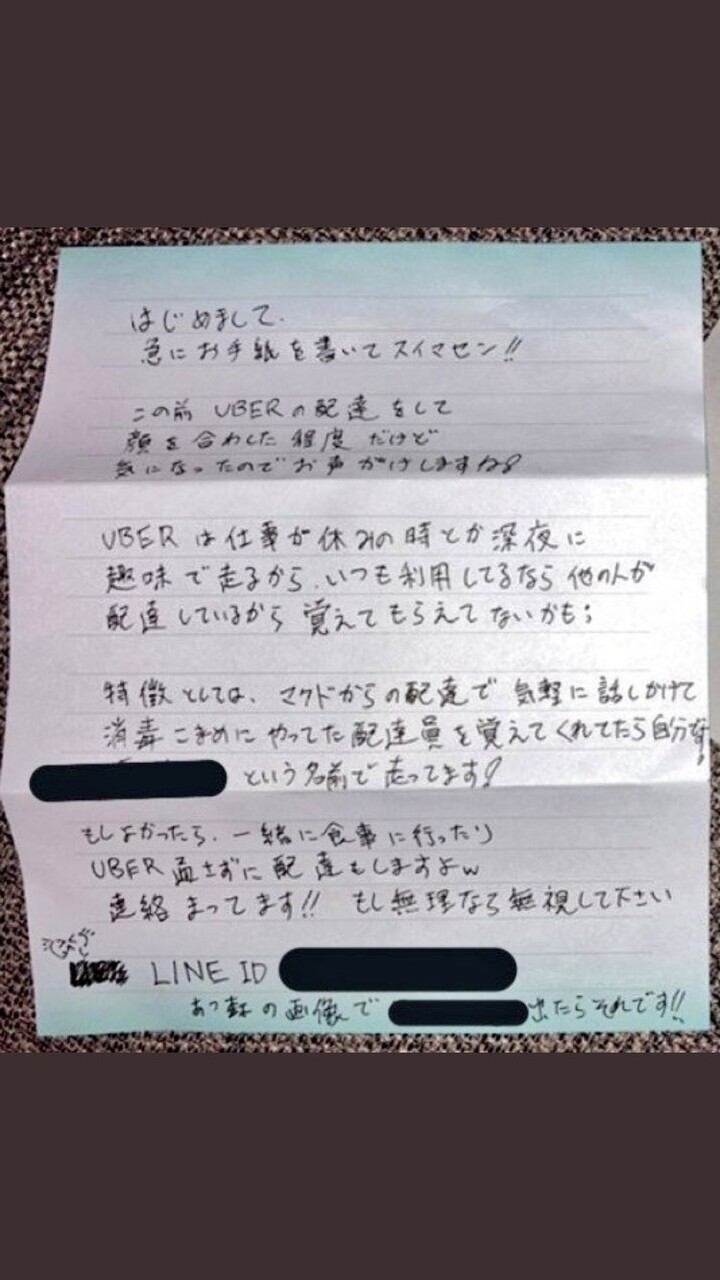 はじめまして.
急にお手紙を書いてスイマセン!!
この前 UBERの配達をして
顔を合わした程度だけど
気になったのでお声がけしますね
UBERは仕事が休みの時とか深夜に
趣味で走るから、いつも利用してるなら他の人が
配達しているから覚えてもらえてないかも;
特徴としては、マクドからの配達で気軽に話しかけて
消毒こまめにやってた配達員を覚えてくれてたら自分
という名前で走ってます!
もしよかったら、一緒に食事に行ったり
UBER 通さずに配達もしますよw
連絡まってます!! もし無理なら無視して下さい
LINE ID
の画像で 出たらそれです!!